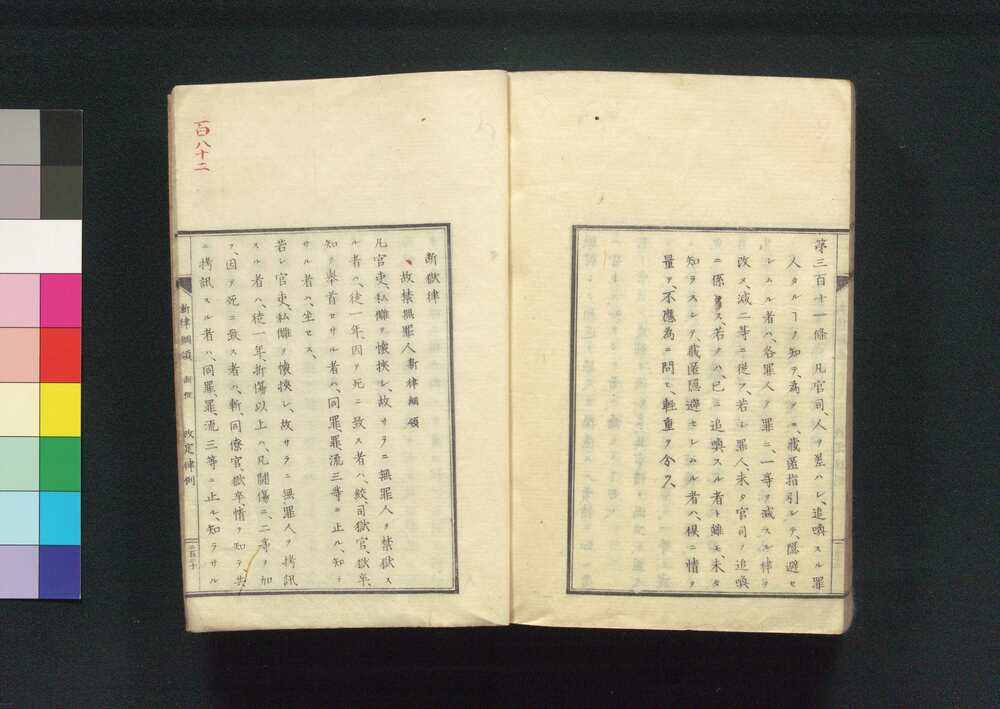 第三百十一條 凡官司、人ヲ差ハシ、追喚スル罪
人タルヿヲ知テ、為メニ、藏匿指引シテ、隱避セ
シムル者ハ、各罪人ノ罪ニ、一等ヲ減スル律ヲ
改メ、減二等ニ從フ、若シ罪人、未タ官司ノ追喚
ニ係ラス、若クハ、已ニ追喚スル者ト雖モ、未タ
知ラスシテ、藏匿隱避セシムル者ハ、模ニ情ヲ
量リ、不應為ニ問ヒ、輕重ヲ分ツ、
百八十二
斷獄律
故禁無罪人 新律綱領
凡官吏、私讎ヲ懷挾シ、故サラニ無罪人ヲ禁獄ス
ル者ハ、徒一年、因テ死ニ致ス者ハ、絞、司獄官、獄卒、
知テ舉首セサル者ハ、同罪、罪、流三等ニ止ル、知ラ
サル者ハ、坐セス、
若シ官吏、私讎ヲ懷挾シ、故サラニ無罪人ヲ拷訊
スル者ハ、徒一年、折傷以上ハ、凡鬪傷ニ、二等ヲ加
ヘ、因テ死ニ致ス者ハ、斬、同僚官、獄卒、情ヲ知テ共
ニ拷訊スル者ハ、同罪、罪、流三等ニ止ル、知ラサル
新律綱領 斷獄 改定律例
二百三十